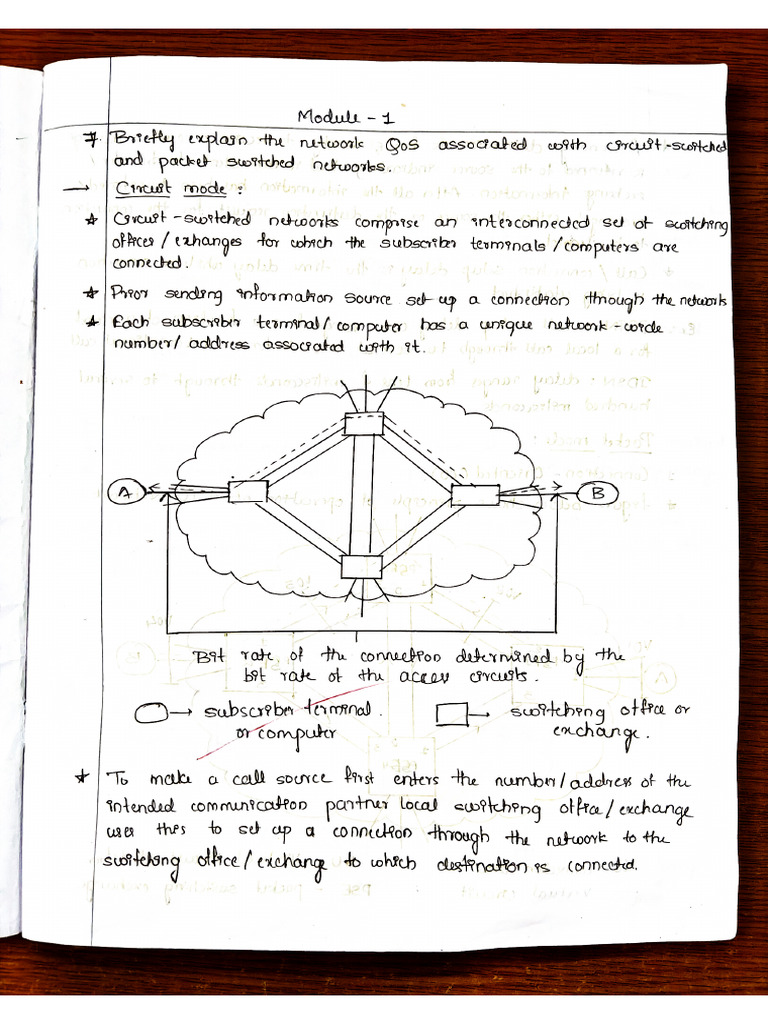 Module - 1
7. Briefly explain the network QoS associated with circuit-switched
and packet switched networks.
→ Circuit mode :
* Circuit-switched networks comprise an interconnected set of switching
offices / exhanges for which the subscriber terminals / computers are
connected.
* Prior sending information source set up a connection through the network
* Each subscriber terminal / computer has a unique network-wide
number / address associated with it.
A
B
Bit rate of the connection determined by the
bit rate of the access circuits.
→ subscriber terminal
or computer
→ switching office or
exchange.
* To make a call source first enters the number / address of the
intended communication partner local switching office / exchange
uses this to set up a connection through the network to the
switching office / exchange to which destination is connected.